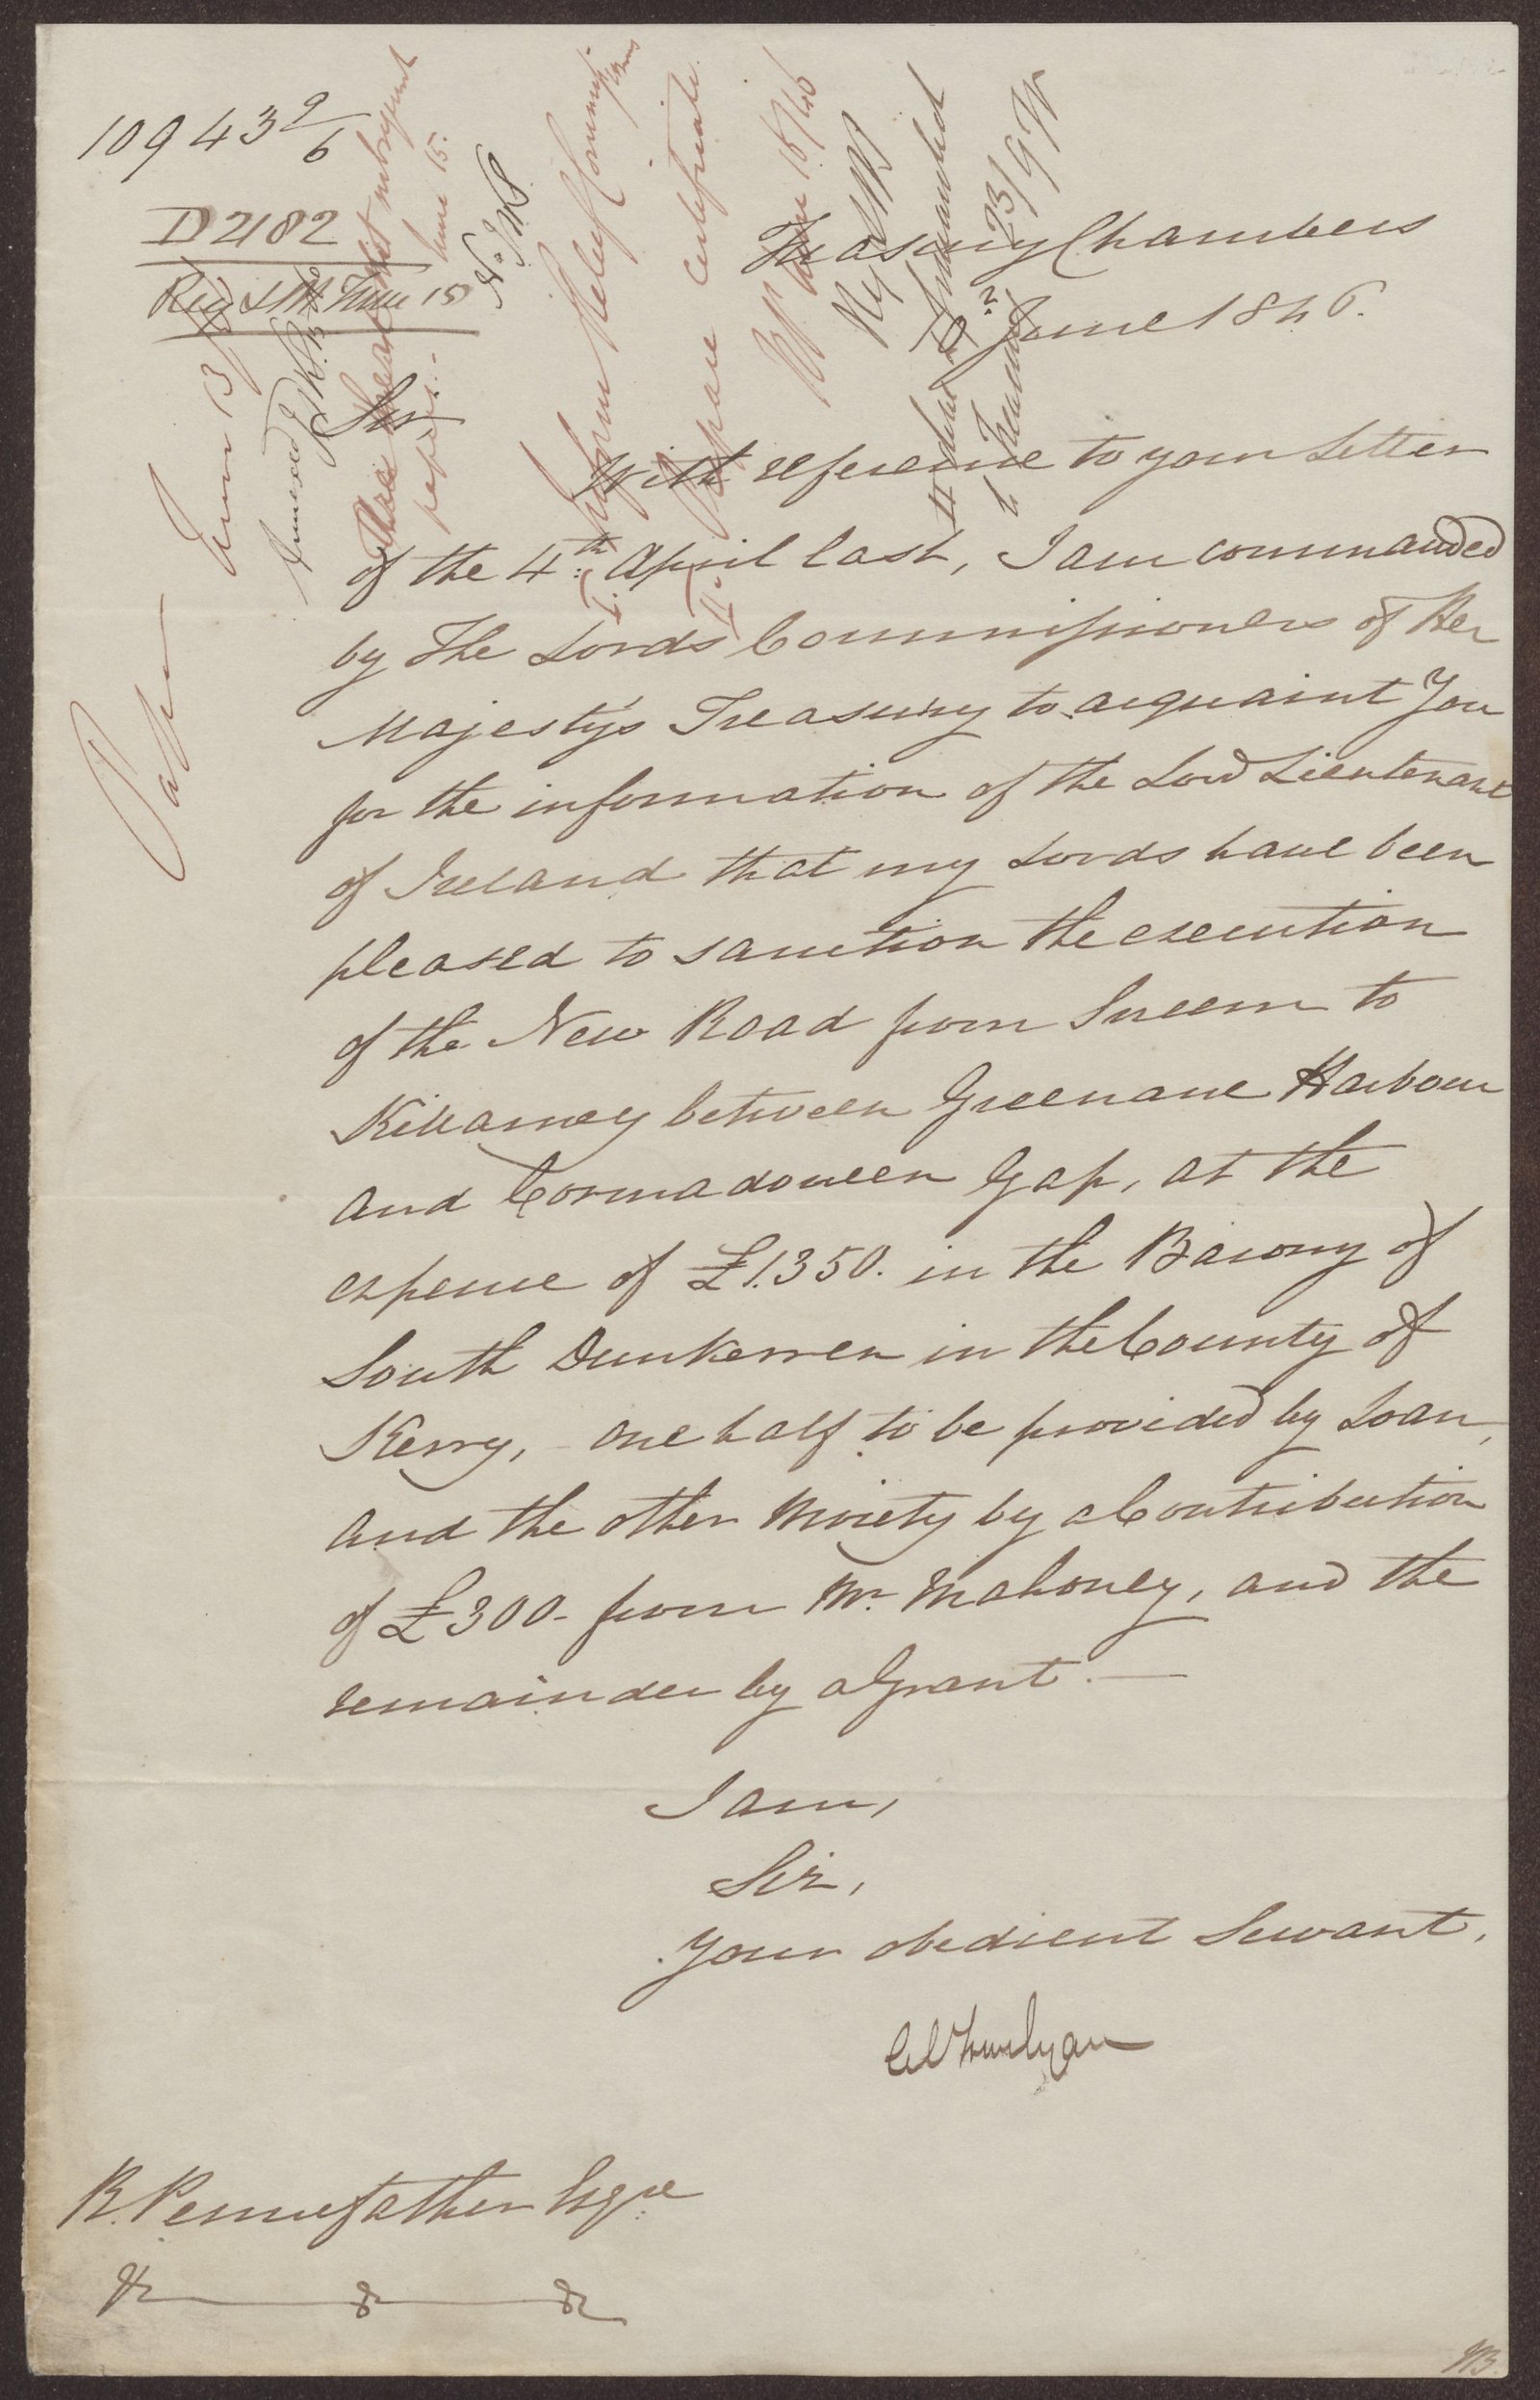 10943 9/6
D2182
June 15
Treasury Chambers
June 1846.
Sir,
With reference to your Letter
of the 4th April last, I am commanded
by The Lords Commissioners of Her
Majesty's Treasury to acquaint You
for the information of the Lord Lieutenant
of Ireland that my Lords have been
pleased to sanction the execution
of the New Road from Sneem to
Killarney between Greenane Harbour
and Cormadoween Gap, at the
expense of £1.350. in the Barony of
South Dunkerren in the County of
Kerry, - one half to be provided by Loan,
and the other Moiety by a Contribution
of £300- from Mr. Mahoney, and the
remainder by a Grant. —
I am,
Sir,
Your obedient Servant,
C E Trevelyan
R. Pennefather Esqre
&c &c &c
Paper June 13
Annexed
papers.
June 15.
I. Inform Relief Commissioners
II. Prepare certificate.
June 15/46
23/